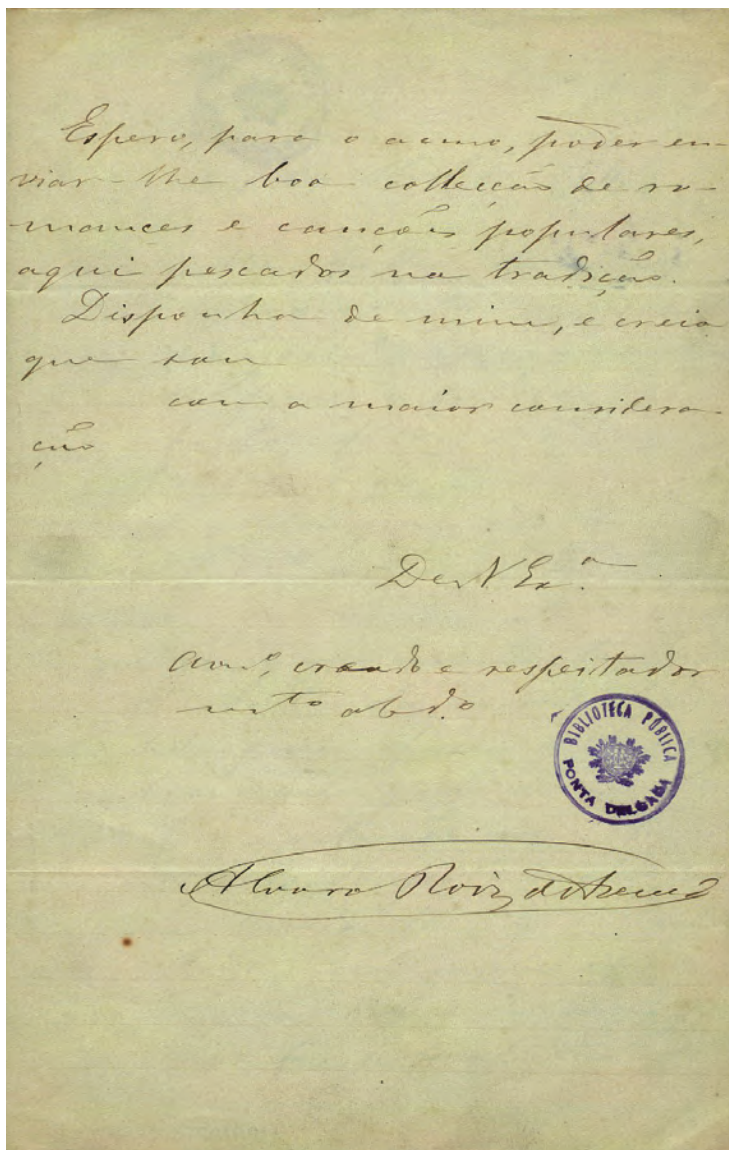 Espero, para o anno, poder en-
viar-lhe boa collecção de ro-
mances e canções populares,
aqui pescados na tradição.
Disponha de mim, e creia
que sou
com a maior considera-
ção
De V Ex.ª
Am.º, creado e respeitador
m.to obg.do
BIBLIOTECA PÚBLICA
PONTA DELGADA
Alvaro Roiz